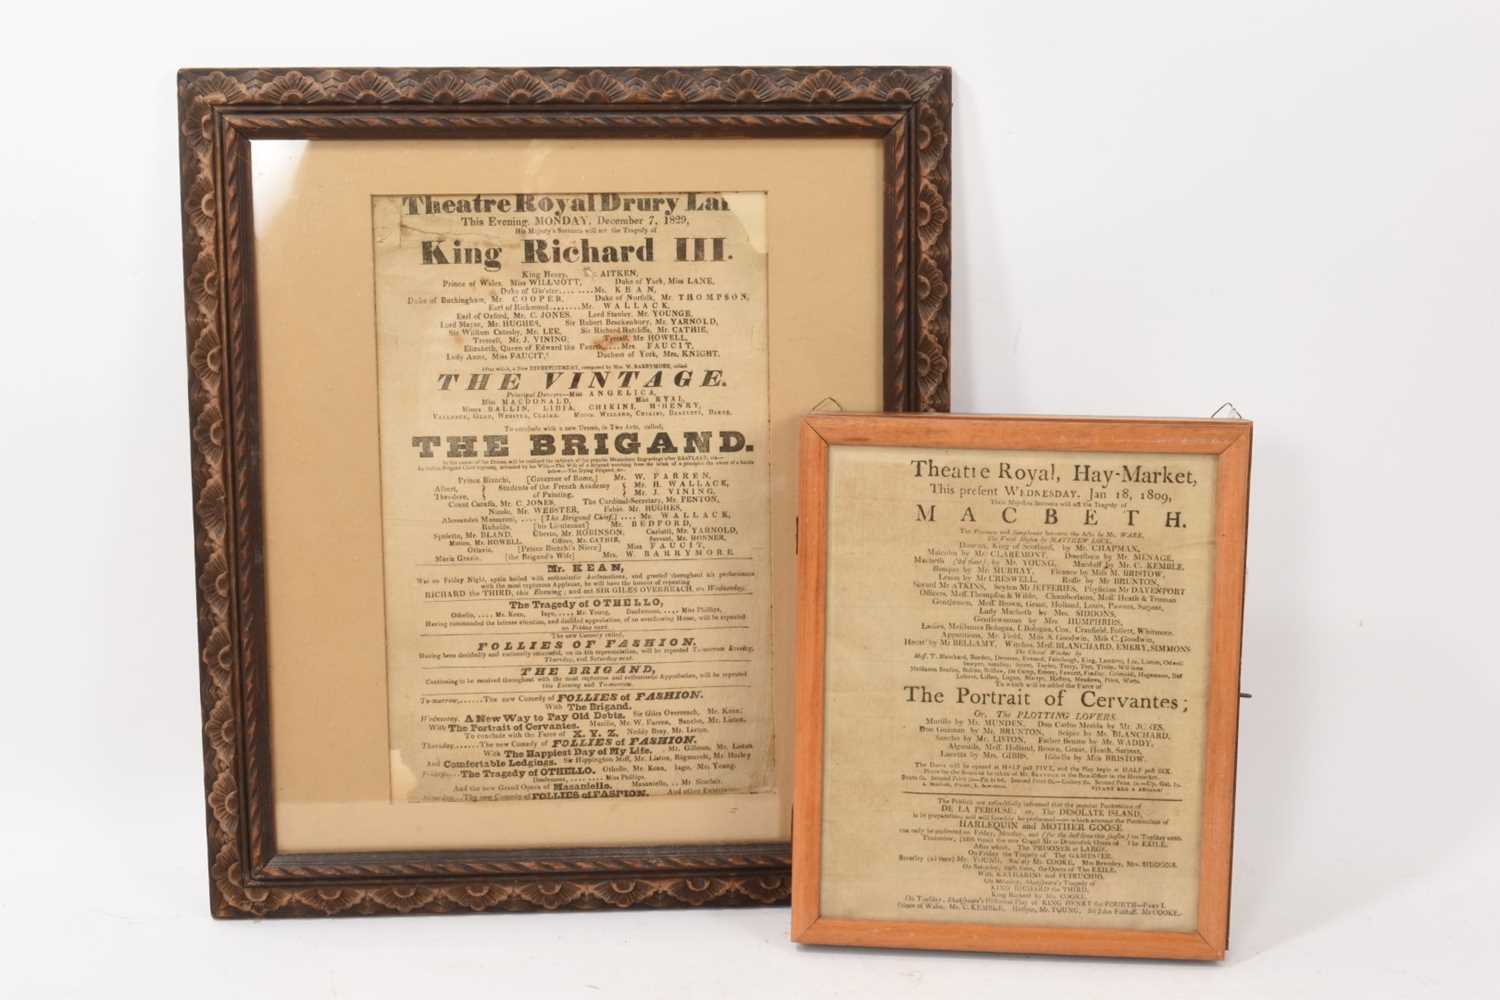 Theatre Royal Drury Lan
This Evening, MONDAY, December 7, 1829,
His Majesty's Servants will act the Tragedy of
King Richard III.
King Henry, AITKEN,
Prince of Wales, Miss WILLMOTT, Duke of York, Miss LANE,
Duke of Glo'ster........Mr. KEAN,
Duke of Buckingham, Mr. COOPER, Duke of Norfolk, Mr. THOMPSON,
Earl of Richmond........Mr. WALLACK,
Earl of Oxford, Mr. C. JONES, Lord Stanley, Mr. YOUNGE,
Lord Mayor, Mr. HUGHES, Sir Robert Brackenbury, Mr. YARNOLD,
Sir William Catesby, Mr. LEE, Sir Richard Ratcliffe, Mr. CATHIE,
Tressell, Mr. J. VINING; Tyrrell, Mr. HOWELL,
Elizabeth, Queen of Edward the Fourth,....Mrs. FAUCIT,
Lady Anne, Miss FAUCIT, Duchess of York, Mrs. KNIGHT.
After which, a New DIVERTISEMENT, composed by Mrs. W. BARRYMORE, called
THE VINTAGE.
Principal Dancers—Miss ANGELICA,
Miss MACDONALD, Miss RYAL,
Misses BALLIN, LIDIA, CHIKINI, M'HENRY,
To conclude with a new Drama, in Two Acts, called,
THE BRIGAND.
Prince Bianchi, [Governor of Rome,] Mr. W. FARREN,
Albert, } Students of the French Academy { Mr. H. WALLACK,
Theodore, } of Painting, { Mr. J. VINING,
Count Caraffa, Mr. C. JONES, The Cardinal-Secretary, Mr. FENTON,
Nicolo, Mr. WEBSTER, Fabio, Mr. HUGHES,
Alessandro Massaroni, .... [The Brigand Chief,] .... Mr. WALLACK,
Rubaldo, [his Lieutenant] Mr. BEDFORD,
Spoletto, Mr. BLAND, Uberto, Mr. ROBINSON, Carlotti, Mr. YARNOLD,
Mr. HOWELL, Officer, Mr. CATHIE, Servant, Mr. HONNER,
Ottavia, [Prince Bianchi's Niece] Miss FAUCIT,
Maria Grazie, [the Brigand's Wife] Mrs. W. BARRYMORE.
Mr. KEAN,
Was on Friday Night, again hailed with enthusiastic Acclamations, and greeted throughout his performance
with the most rapturous Applause, he will have the honour of repeating
RICHARD the THIRD, this Evening; and act SIR GILES OVERREACH, on Wednesday.
The Tragedy of OTHELLO,
Othello, .... Mr. Kean, Iago, .... Mr. Young, Desdemona, .... Miss Phillips,
Having commanded the intense attention, and decided approbation, of an overflowing House, will be repeated
on Friday next.
The new Comedy called,
FOLLIES OF FASHION,
Having been decidedly and eminently successful, on its 4th representation, will be repeated To-morrow Evening,
Thursday, and Saturday next.
THE BRIGAND,
Continuing to be received throughout with the most rapturous and enthusiastic Approbation, will be repeated
this Evening and To-morrow.
To-morrow,......The new Comedy of FOLLIES of FASHION.
With The Brigand.
Wednesday, A New Way to Pay Old Debts. Sir Giles Overreach, Mr. Kean;
With The Portrait of Cervantes. Murillo, Mr. W. Farren, Sancho, Mr. Liston.
To conclude with the Farce of X. Y. Z. Neddy Bray, Mr. Liston.
Thursday......The new Comedy of FOLLIES of FASHION.
With The Happiest Day of My Life. Mr. Gillman, Mr. Liston
And Comfortable Lodgings. Sir Hippington Miff, Mr. Liston, Rigmarole, Mr. Harley
The Tragedy of OTHELLO. Othello, Mr. Kean, Iago, Mr. Young.
Desdemona, ........ Miss Phillips.
And the new Grand Opera of Masaniello. Masaniello, .. Mr. Sinclair.
The new Comedy of FOLLIES of FASHION. And other Entertainments
Theatre Royal, Hay-Market,
This present WEDNESDAY, Jan 18, 1809,
Their Majesties Servants will act the Tragedy of
MACBETH.
The Overture and Symphonies between the Acts by Mr. WARE,
The Vocal Musick by MATTHEW LOCK.
Duncan, King of Scotland, by Mr. CHAPMAN,
Malcolm by Mr. CLAREMONT, Donalbain by Mr. MENAGE,
Macbeth by Mr. YOUNG, Macduff by Mr. C. KEMBLE,
Banquo by Mr. MURRAY, Fleance by Miss M. BRISTOW,
Lenox by Mr CRESWELL, Rosse by Mr BRUNTON,
Siward Mr ATKINS, Seyton Mr JEFFERIES, Physician Mr DAVENPORT
Officers, Mess. Thompson & Wilde, Chamberlains, Mess. Heath & Truman
Gentlemen, Mess. Brown, Grant, Holland, Louis, Powers, Sarjant,
Lady Macbeth by Mrs. SIDDONS,
Gentlewoman by Mrs HUMPHRIES,
Ladies, Mesdames Bologna, Cox, Cranfield, Follett, Whitmore.
Apparitions, Mr Field, Miss S. Goodwin, Miss C. Goodwin,
Hecat' by Mr BELLAMY, Witches, Mess. BLANCHARD, EMERY, SIMMONS
To which will be added the Farce of
The Portrait of Cervantes;
Or, The PLOTTING LOVERS.
Murillo by Mr. MUNDEN, Don Carlos Merida by Mr. JONES,
Don Guzman by Mr. BRUNTON, Scipio by Mr. BLANCHARD,
Sancho by Mr. LISTON, Father Benito by Mr. WADDY,
Alguazils, Mess. Holland, Brown, Grant, Heath, Sarjant,
Lucetta by Mrs. GIBBS, Isabella by Miss BRISTOW.
The Doors will be opened at HALF past FIVE, and the Play begin at HALF past SIX.
VIVANT REX & REGINA!
The Publick are respectfully informed that the popular Pantomime of
DE LA PEROUSE; or, The DESOLATE ISLAND,
HARLEQUIN and MOTHER GOOSE
can only be performed on Friday, Monday, and (for the last time this season) on Tuesday next.
Tomorrow, the Grand Melo-Dramatick Opera of The EXILE.
After which, The PRISONER at LARGE.
On Friday the Tragedy of The GAMESTER.
Beverley Mr. YOUNG, Stukely Mr. COOKE, Mrs Beverley, Mrs. SIDDONS.
On Saturday, the Opera of The EXILE.
With KATHARINE and PETRUCHIO.
On Monday, Shakspeare's Tragedy of
KING RICHARD the THIRD.
King Richard by Mr. COOKE.
On Tuesday, Shakspeare's Historical Play of KING HENRY the FOURTH—Part I.
Prince of Wales, Mr. C. KEMBLE, Hotspur, Mr. YOUNG, Sir John Falstaff, Mr COOKE.